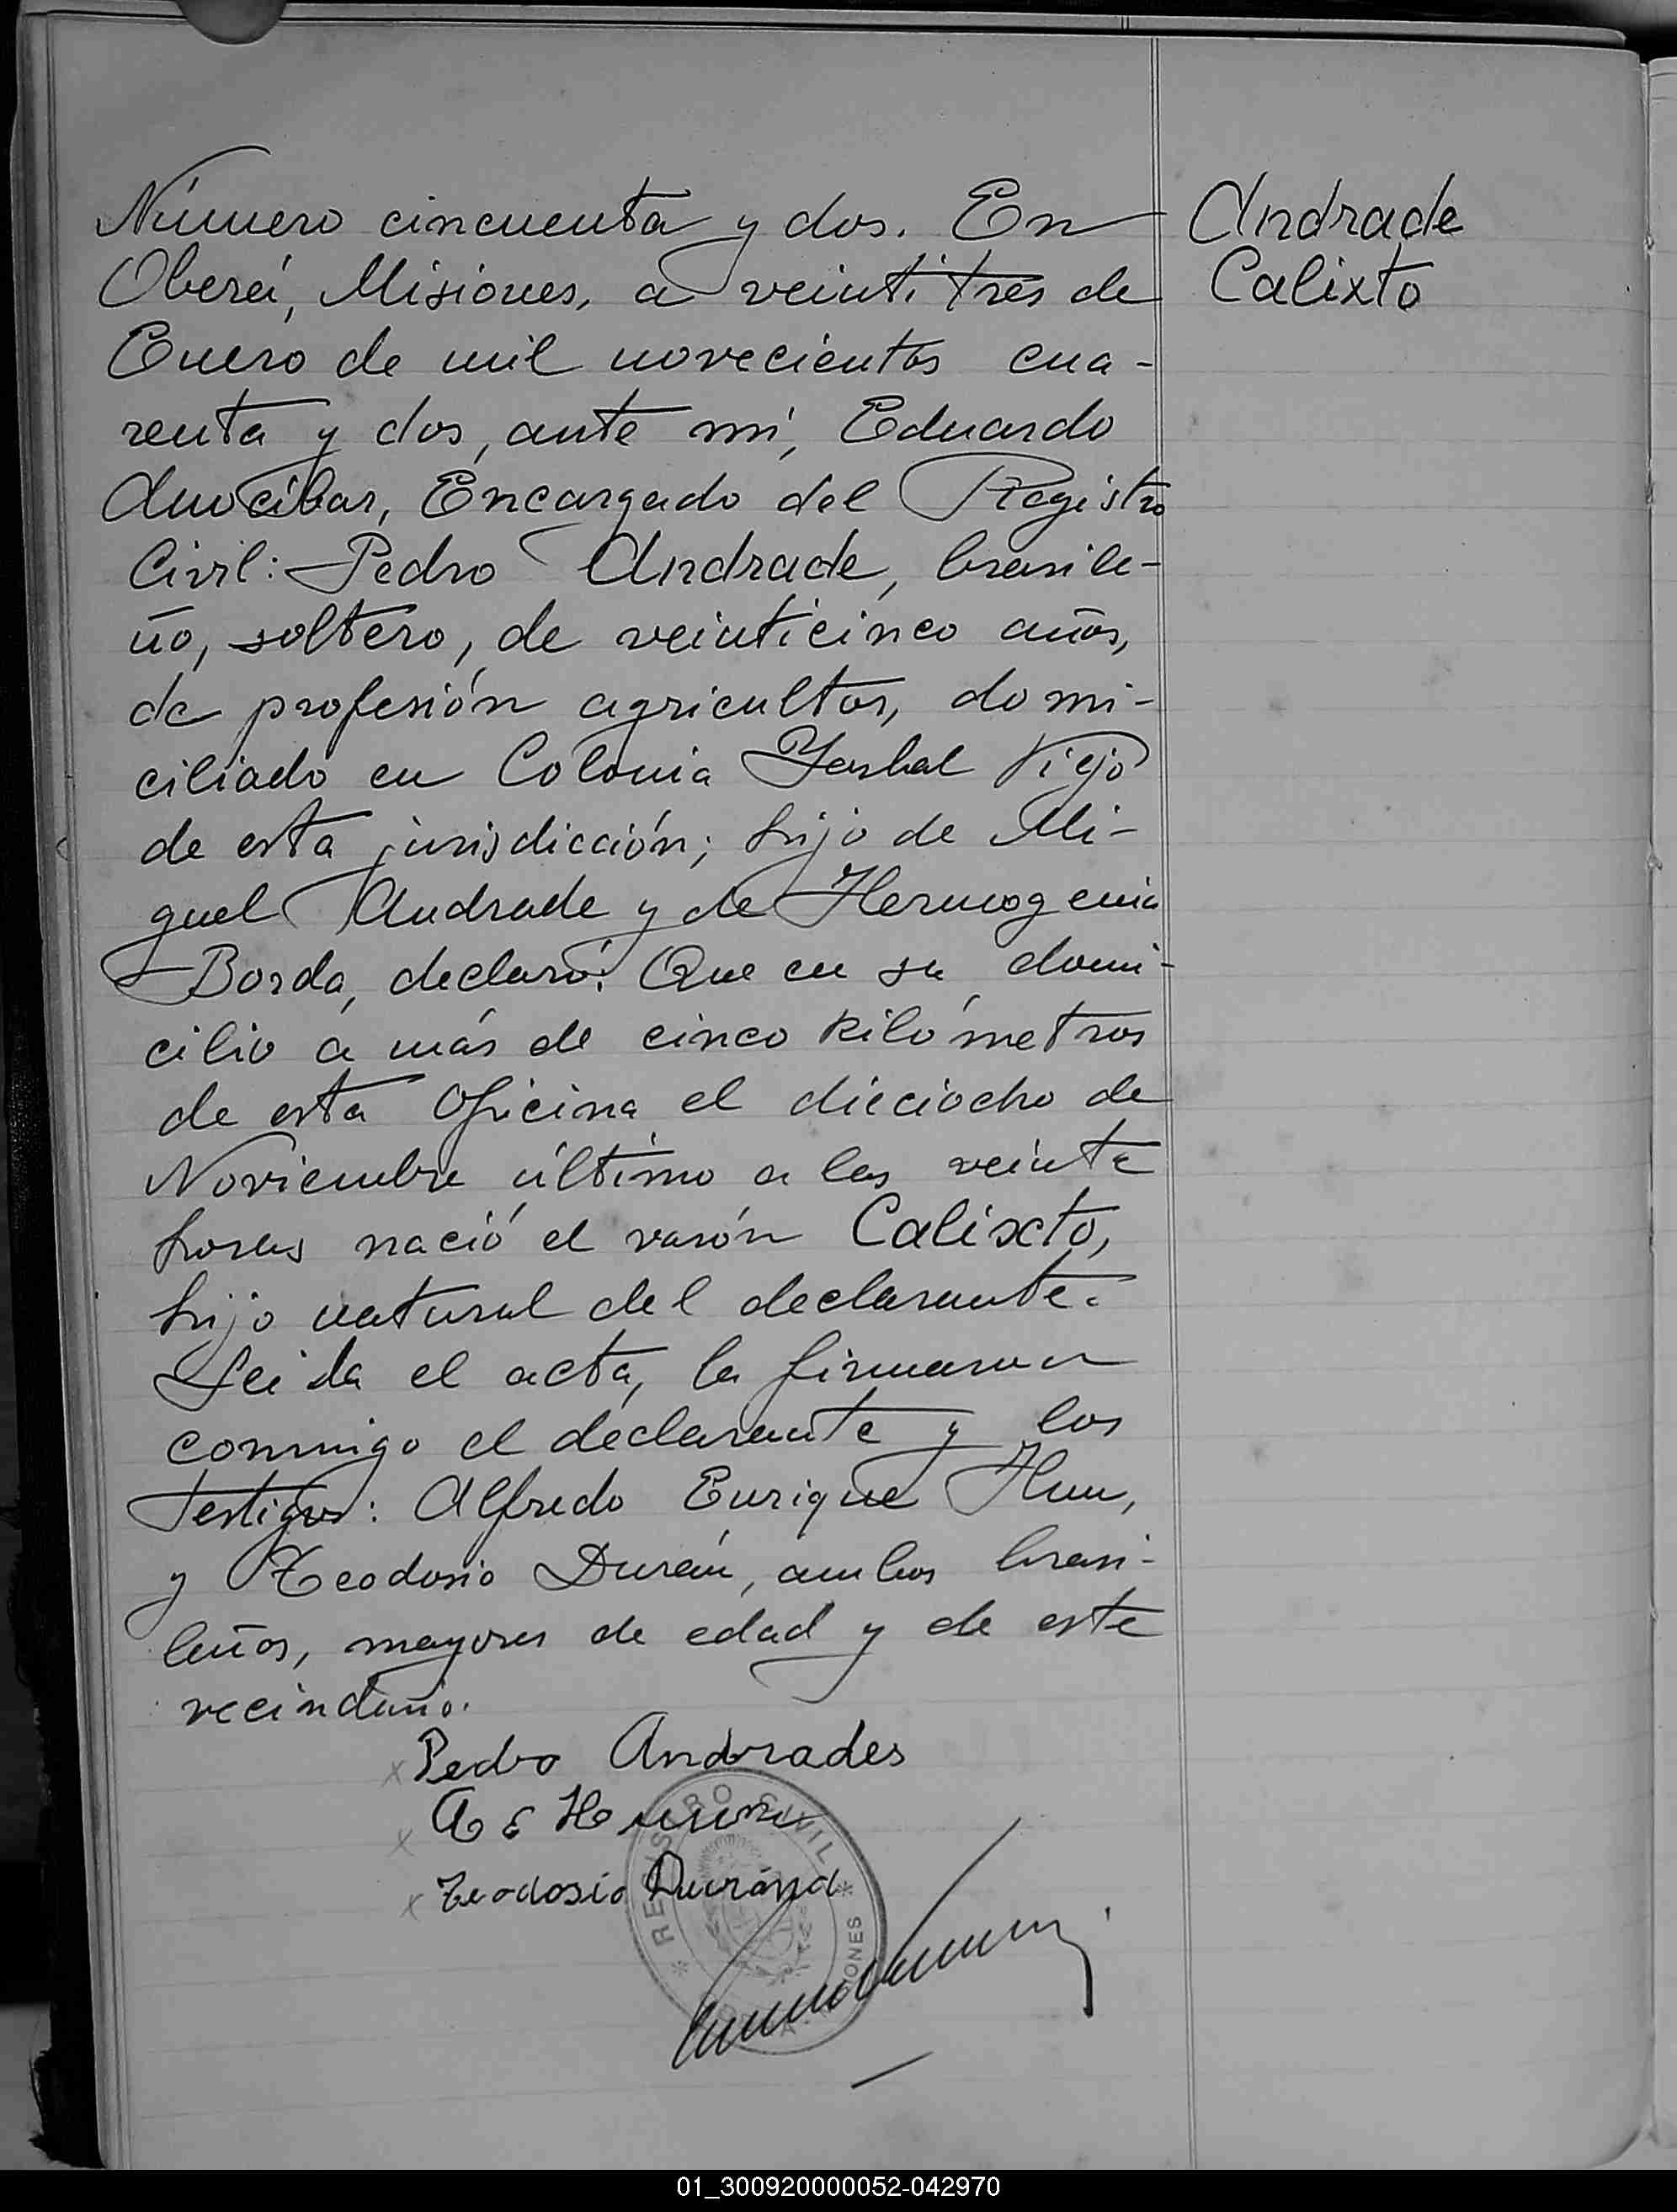 Número cincuenta y dos. En
Andrade
Oberá, Misiones, a veintitrés de
Calixto
Enero de mil novecientos cua-
renta y dos, ante mí, Eduardo
Amocíbar, Encargado del Registro
Civil: Pedro Andrade, brasile-
ño, soltero, de veinticinco años,
de profesión agricultor, domi-
ciliado en Colonia Yerbal Viejo
de esta jurisdicción; hijo de Mi-
guel Andrade y de Hermogenia
Borda, declaró: Que en su domi-
cilio a más de cinco kilómetros
de esta Oficina el dieciocho de
Noviembre último a las veinte
horas nació el varón Calixto,
hijo natural del declarante.
Leída el acta, la firmaron
conmigo el declarante y los
testigos: Alfredo Enrique Hun,
y Teodosio Durán, ambos brasi-
leños, mayores de edad y de este
vecindario.
Pedro Andrades
A E
Teodosio
REGISTRO CIVIL
01_300920000052-042970